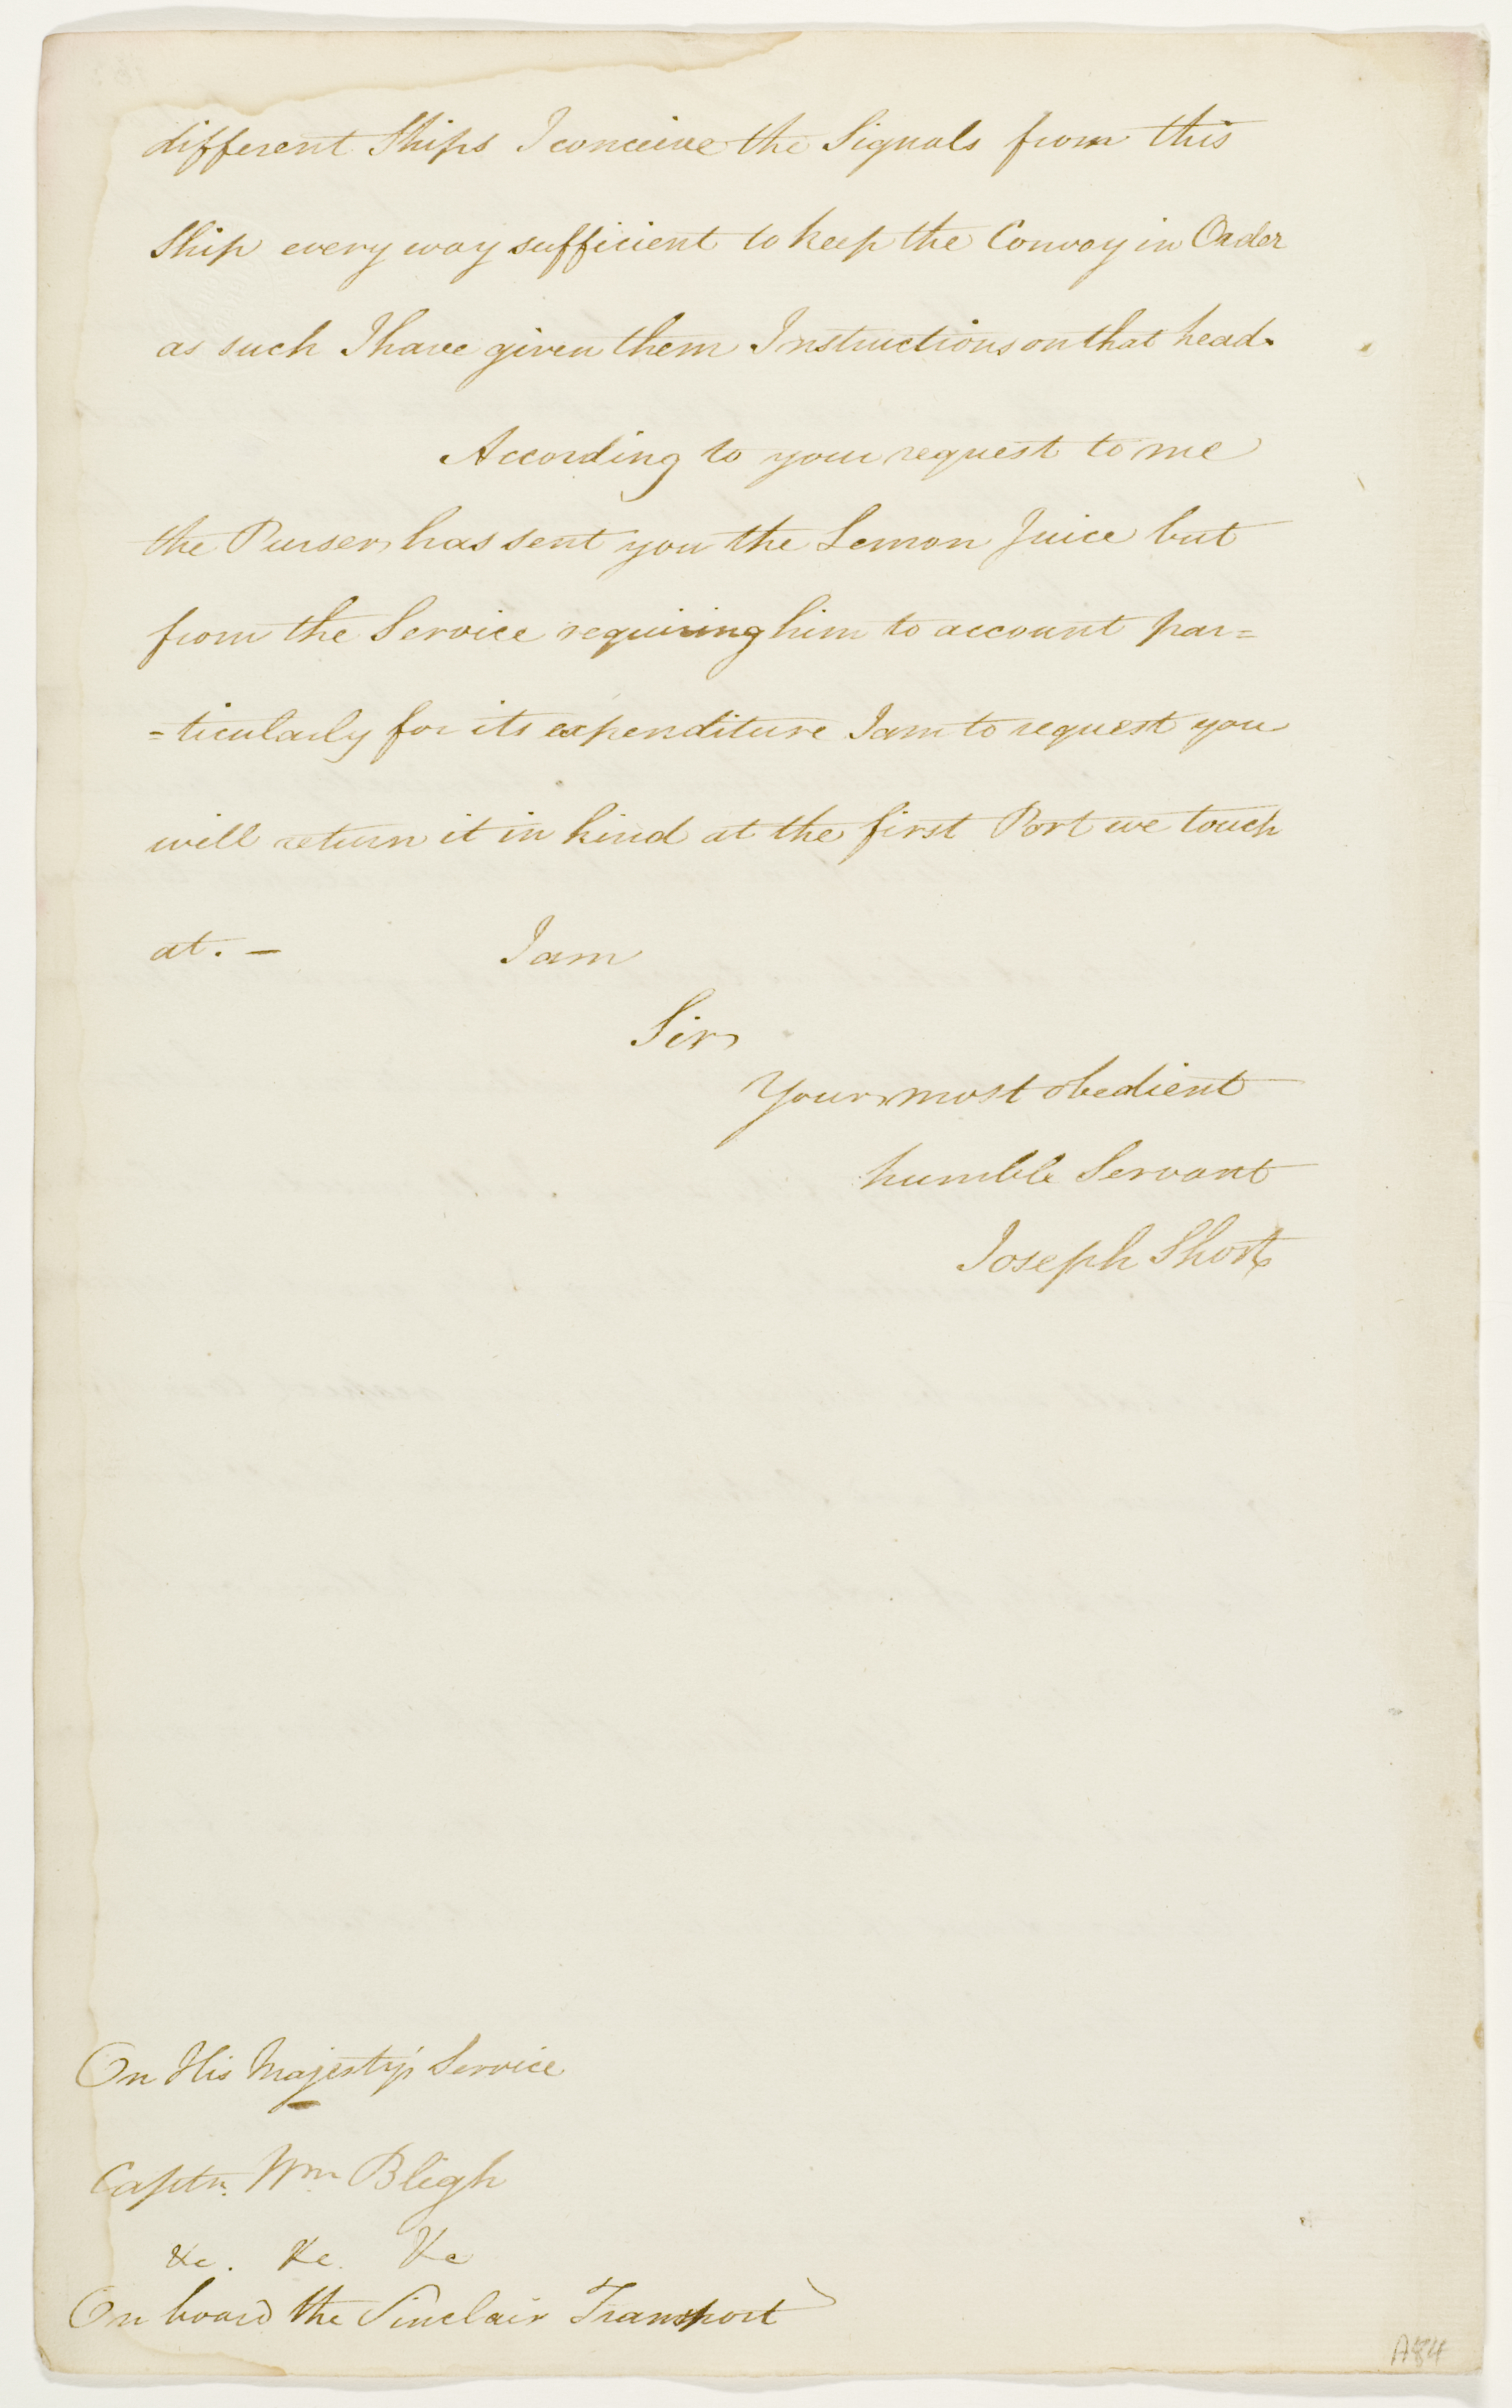 different Ships I conceive the Signals from this
Ship every way sufficient to keep the Convoy in Order
as such I have given them Instructions on that head.
According to your request to me
the Purser has sent you the Lemon Juice but
from the Service requiring him to account par=
=ticularly for its expenditure I am to request you
will return it in kind at the first Port we touch
at. — I am
Sir
Your most obedient
humble Servant
Joseph Short
On His Majesty's Service
Captn. Wm. Bligh
&c. &c. &c
On board the Sinclair Transport
A84